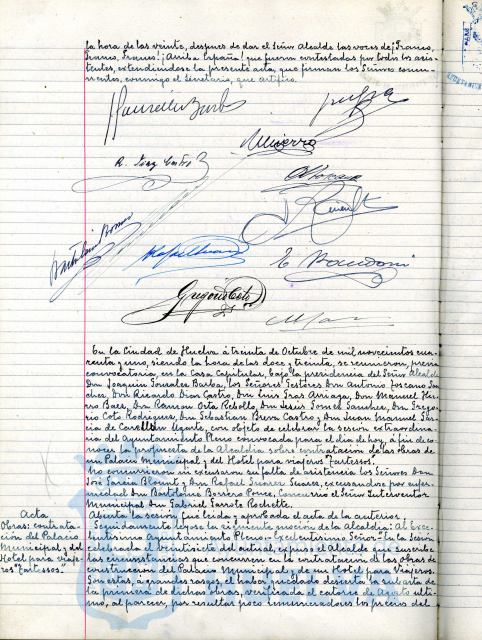 la hora de las veinte, despues de dar el Señor Alcalde las voces de ¡Franco,
Franco, Franco! ¡Arriba España! que fueron contestadas por todos los asis-
tentes, extendiendose la presente acta, que firman los Señores concu-
rrentes, conmigo el Secretario, que certifico.
R. Diaz Castro
Bartolomé Borrero
Gregorio Coto
En la Ciudad de Huelva á treinta de Octubre de mil novecientos cua-
renta y uno, siendo la hora de las doce y treinta, se reunieron, previa
convocatoria, en la Casa Capitular, bajo la presidencia del Señor Alcalde
Don Joaquin Gonzalez Barba, los Señores Gestores Don Antonio Toscano San-
chez, Don Ricardo Diaz Castro, Don Luis Gras Arriaga, Don Manuel Hie-
rro Baez, Don Ramon Ota Rebollo, Don Jesús Jomé Sanchez, Don Grego-
rio Coto Rodriguez, Don Sebastian Perea Castro y Don Juan Manuel Gar-
cia de Ugarte, con objeto de celebrar la sesión extraordina-
ria del Ayuntamiento Pleno convocada para el dia de hoy, á fin de co-
nocer la propuesta de la Alcaldia sobre contratacion de las obras de
un Palacio Municipal y del Hotel para viajeros Tartessos.
No concurrieron ni excusaron su falta de asistencia los Señores Don
José Garcia Blount y Don Rafael Suarez Suarez, excusandose por enfer-
medad Don Bartolome Borrero Ponce. Concurrio el Señor Interventor
Municipal Don Gabriel Sarrote
Abierta la sesión, fué leida y aprobada el acta de la anterior.
Acta
Obras: contrata-
ción del Palacio
Municipal y del
Hotel para viaje-
ros "Tartessos".
Seguidamente leyose la siguiente moción de la Alcaldia: Al Exce-
lentisimo Ayuntamiento Pleno.- Excelentisimo Señor: "En la Sesión
celebrada el veintisiete del actual, expuso el Alcalde que suscribe
las circunstancias que concurren en la contratación de las obras de
construcción del Palacio Municipal y de un Hotel para Viajeros.
Son estas, á grandes rasgos, el haber quedado desierta la subasta de
la primera de dichas obras, verificada el catorce de Agosto ulti-
mo, al parecer, por resultar poco remuneradores los precios del